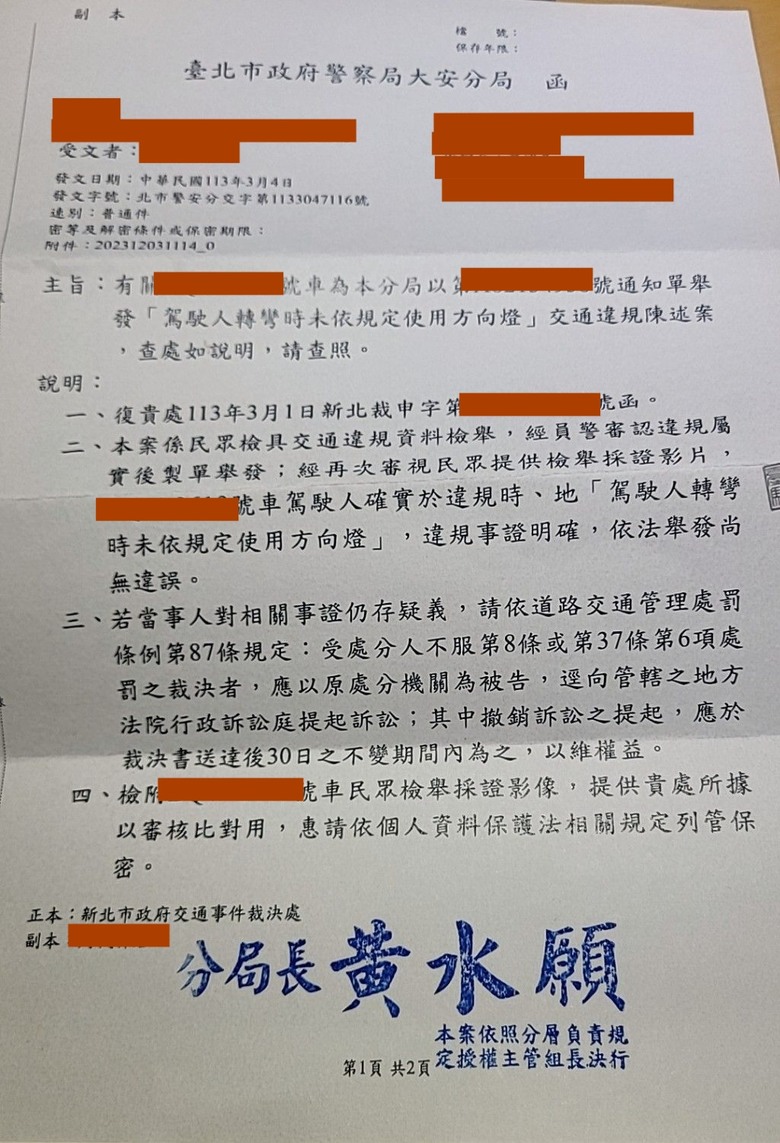 副 本
檔 號：
保存年限：
臺北市政府警察局大安分局 函
受文者：
發文日期：中華民國113年3月4日
發文字號：北市警安分交字第1133047116號
速別：普通件
密等及解密條件或保密期限：
附件：202312031114_0
主旨：有關 號車為本分局以第 號通知單舉
發「駕駛人轉彎時未依規定使用方向燈」交通違規陳述案
，查處如說明，請查照。
說明：
一、復貴處113年3月1日新北裁申字第 號函。
二、本案係民眾檢具交通違規資料檢舉，經員警審認違規屬
實後製單舉發；經再次審視民眾提供檢舉採證影片，
號車駕駛人確實於違規時、地「駕駛人轉彎
時未依規定使用方向燈」，違規事證明確，依法舉發尚
無違誤。
三、若當事人對相關事證仍存疑義，請依道路交通管理處罰
條例第87條規定：受處分人不服第8條或第37條第6項處
罰之裁決者，應以原處分機關為被告，逕向管轄之地方
法院行政訴訟庭提起訴訟；其中撤銷訴訟之提起，應於
裁決書送達後30日之不變期間內為之，以維權益。
四、檢附 號車民眾檢舉採證影像，提供貴處所據
以審核比對用，惠請依個人資料保護法相關規定列管保
密。
正本：新北市政府交通事件裁決處
副本
分局長 黃水願
本案依照分層負責規
定授權主管組長決行
第1頁 共2頁